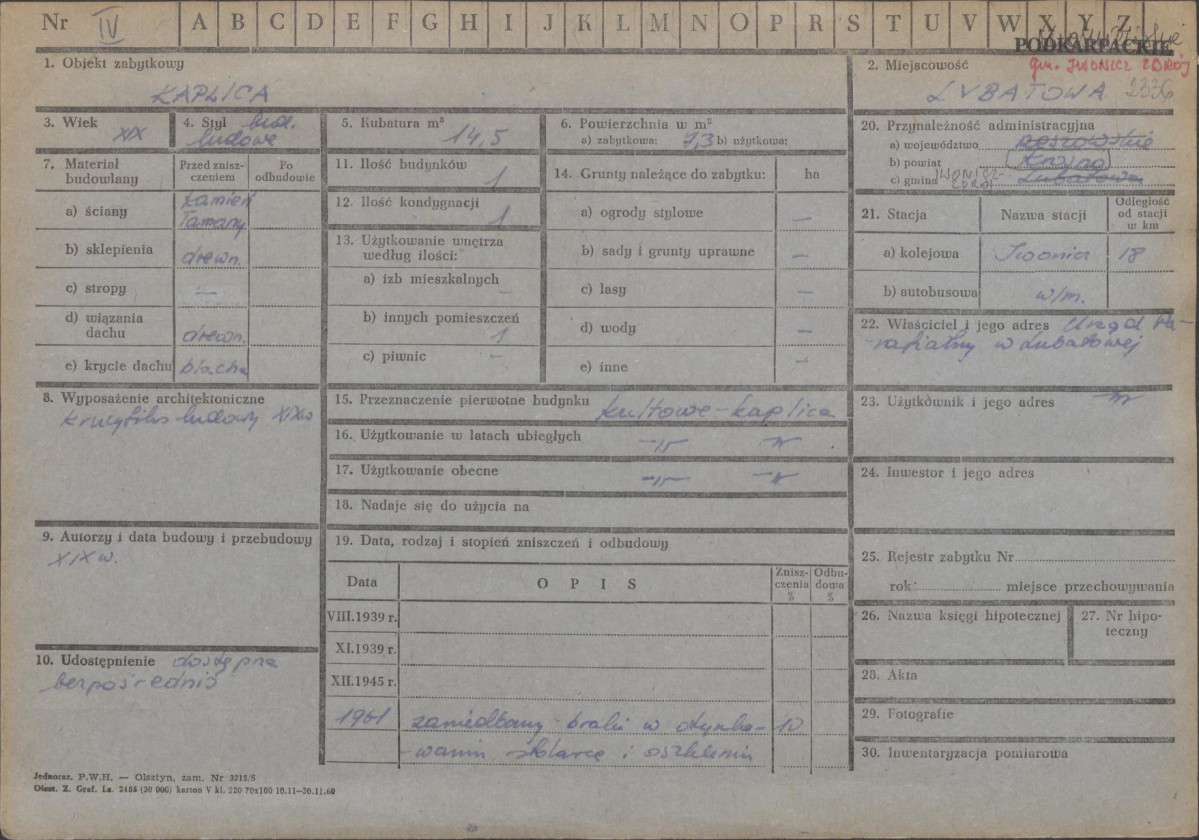 Nr IV A B C D E F G H I J K L M N O P R S T U V W X Y Z
PODKARPACKIE
1. Obiekt zabytkowy
KAPLICA
2. Miejscowość
gm. IWONICZ ZDRÓJ
LUBATOWA 2336
3. Wiek
XIX
4. Styl bud.
ludowe
5. Kubatura m³
14,5
6. Powierzchnia w m²
a) zabytkowa: 7,3 b) użytkowa:
7. Materiał budowlany
Przed zniszczeniem
Po odbudowie
a) ściany
kamień
łamany
b) sklepienia drewn.
c) stropy —
d) wiązania dachu drewn.
e) krycie dachu blacha
8. Wyposażenie architektoniczne
Krucyfiks ludowy XIX w
9. Autorzy i data budowy i przebudowy
XIX w.
10. Udostępnienie dostępna
bezpośrednio
11. Ilość budynków
1
12. Ilość kondygnacji
1
13. Użytkowanie wnętrza
według ilości:
a) izb mieszkalnych
—
b) innych pomieszczeń
1
c) piwnic —
14. Grunty należące do zabytku: ha
a) ogrody stylowe —
b) sady i grunty uprawne —
c) lasy —
d) wody —
e) inne —
15. Przeznaczenie pierwotne budynku kultowe - kaplica
16. Użytkowanie w latach ubiegłych —"— —"—
17. Użytkowanie obecne —"— —"—
18. Nadaje się do użycia na
19. Data, rodzaj i stopień zniszczeń i odbudowy
Data O P I S Zniszczenia % Odbudowa %
VIII.1939 r.
XI.1939 r.
XII.1945 r.
1961 zaniedbany - braki w otynko- 10
-waniu stolarce i oszkleniu
20. Przynależność administracyjna
a) województwo rzeszowskie
b) powiat Krosno
c) gmina IWONICZ-ZDRÓJ Lubatowa
21. Stacja Nazwa stacji Odległość od stacji w km
a) kolejowa Iwonicz 18
b) autobusowa w/m.
22. Właściciel i jego adres Urząd Pa-
-rafialny w Lubatowej
23. Użytkownik i jego adres —"—
24. Inwestor i jego adres
25. Rejestr zabytku Nr
rok miejsce przechowywania
26. Nazwa księgi hipotecznej
27. Nr hipoteczny
28. Akta
29. Fotografie
30. Inwentaryzacja pomiarowa
Jednoraz. P.W.H. — Olsztyn, zam. Nr 3215/S
Olszt. Z. Graf. Lz. 2485 (30 000) karton V kl. 220 70x100 10.11—30.11.60